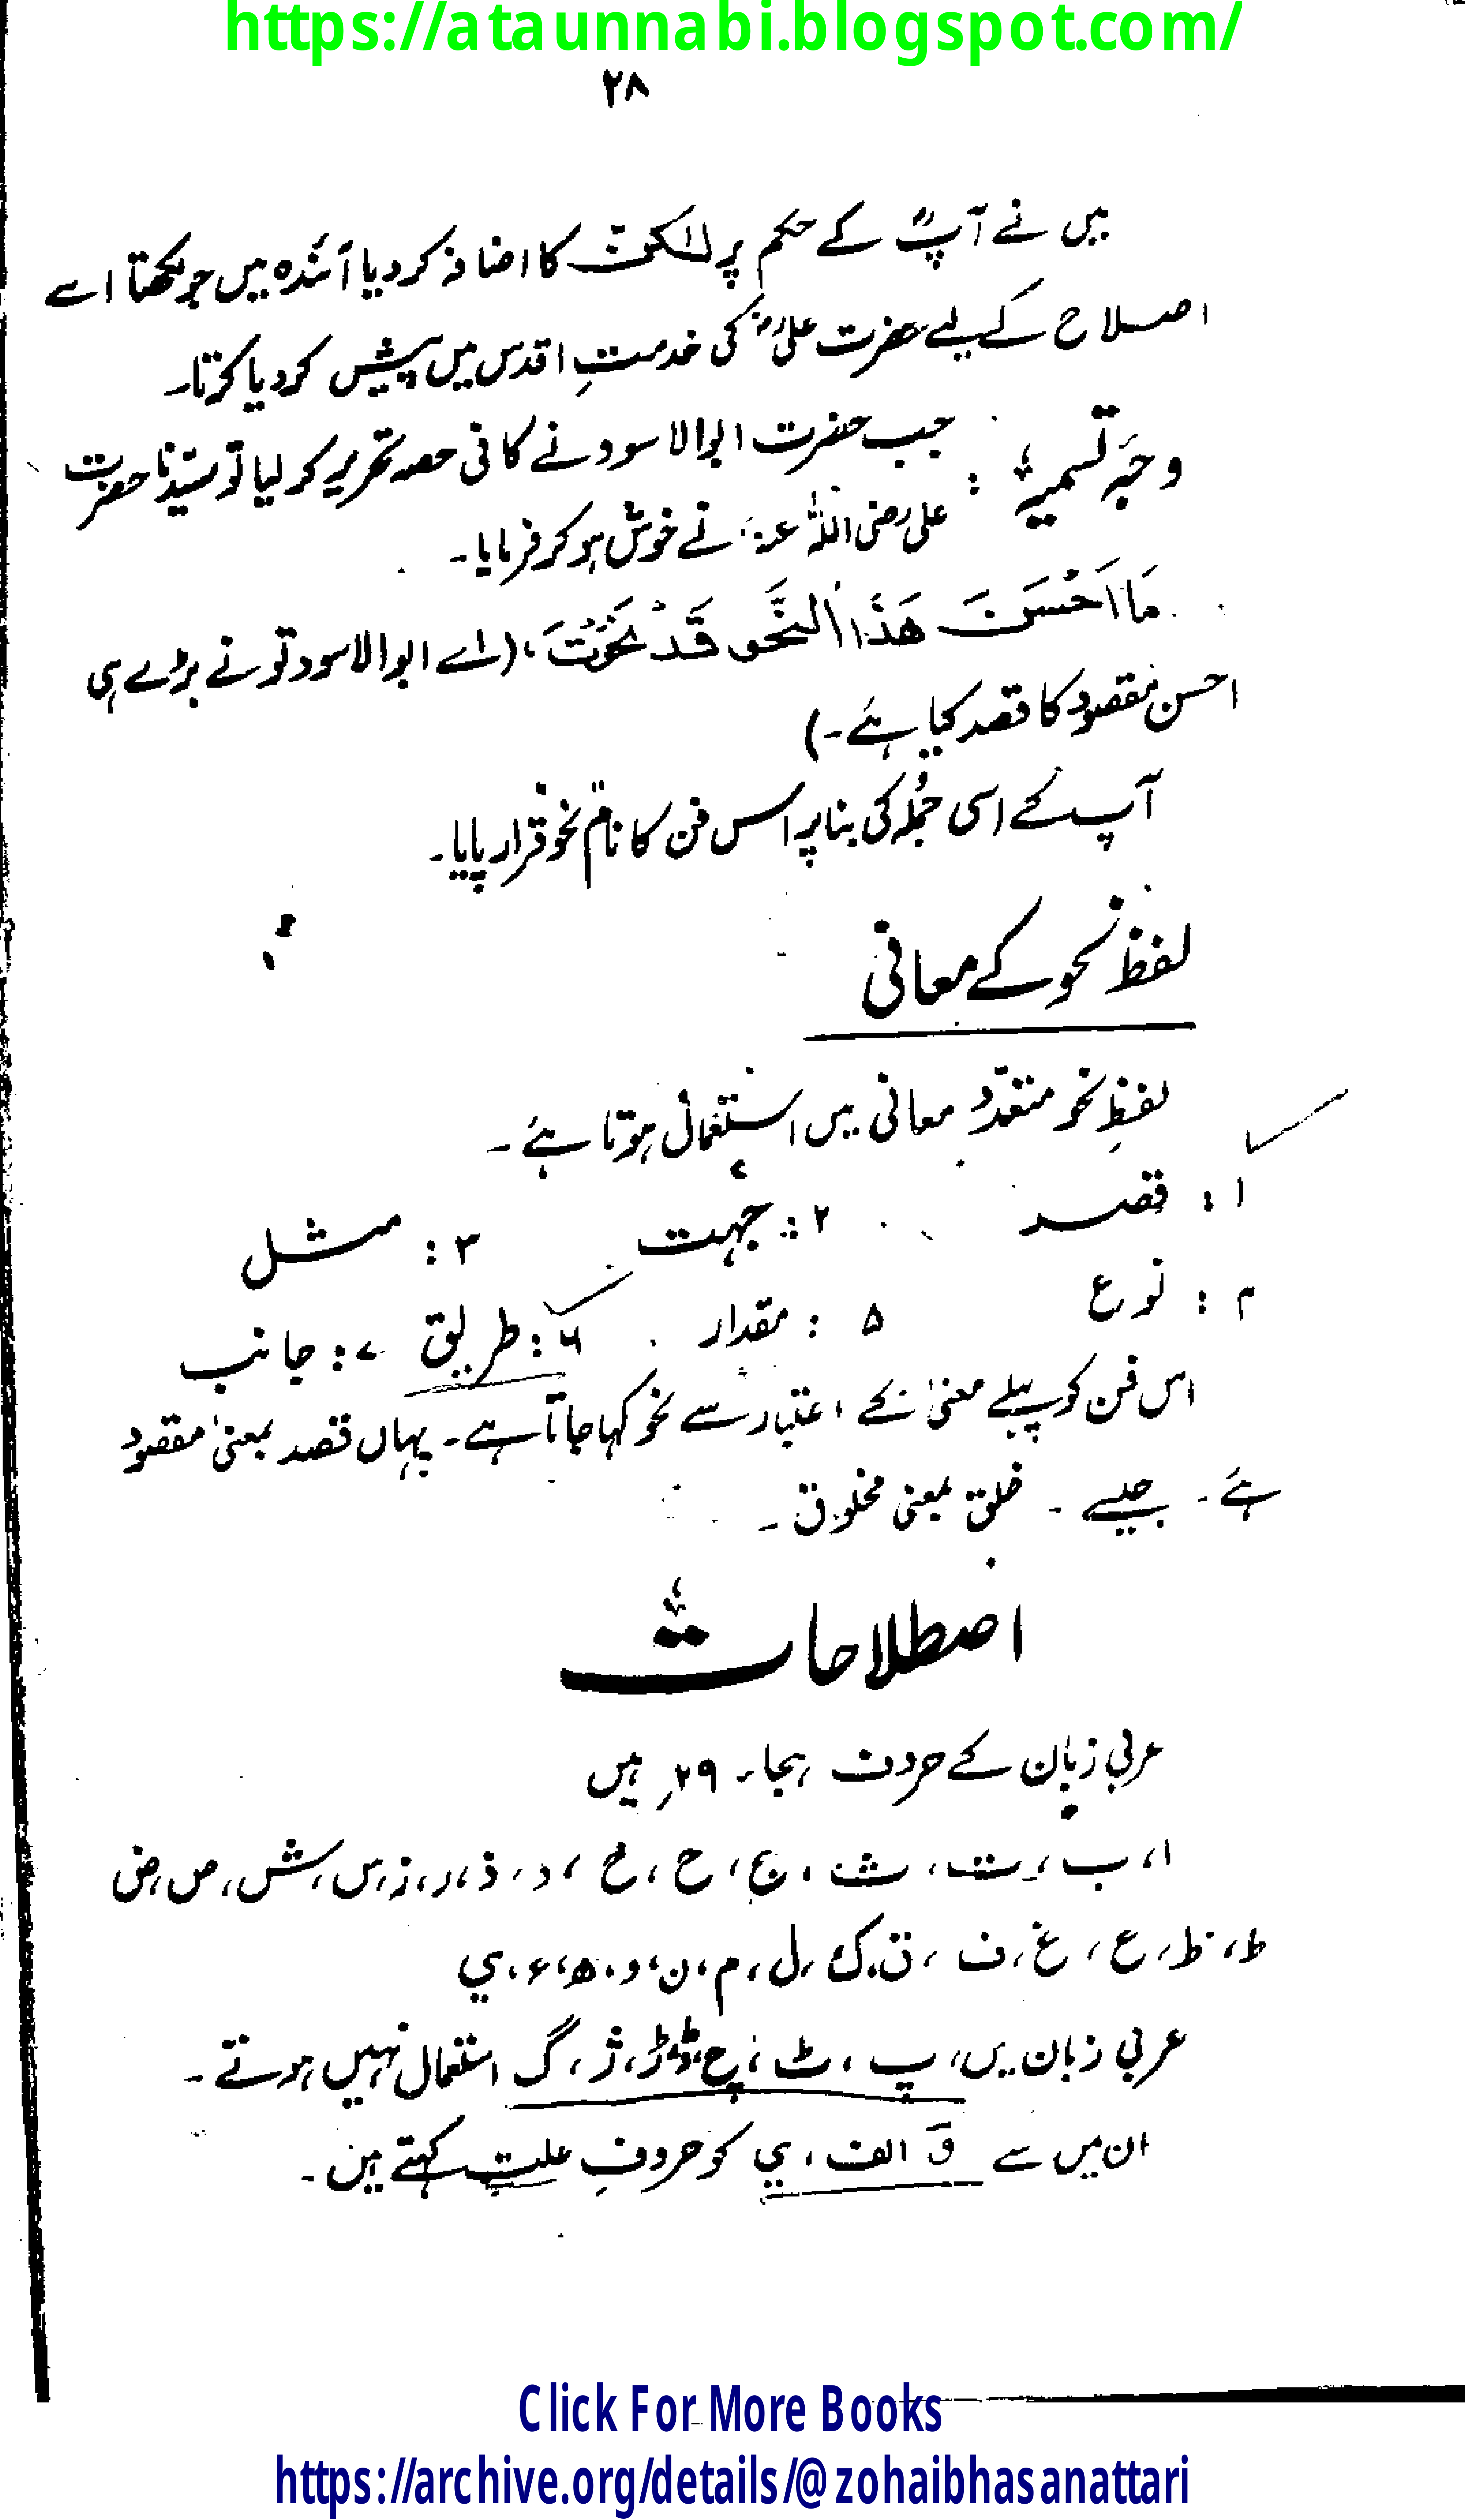 https://ataunnabi.blogspot.com/
۲۸
میں نے آپؓ کے حکم پر لٰکنّ کا اضافہ کر دیا آئندہ میں جو لکھتا اسے
اصلاح کے لیے حضرت علیؓ کی خدمتِ اقدس میں پیش کر دیا کرتا۔
وجہِ تسمیہ : جب حضرت ابوالاسود نے کافی حصہ تحریر کر لیا تو سیّدنا حضرت
علی رضی اللہ عنہ نے خوش ہو کر فرمایا۔
مَا اَحْسَنَ هَذَا النَّحو قَدْ نَحَوْتَ، (اے ابوالاسود تو نے بڑے ہی
احسن مقصود کا قصد کیا ہے۔)
آپ کے اسی جُملہ کی بنا پر اس فن کا نام نحو قرار پایا۔
لفظ نحو کے معانی
لفظِ نحو متعدّد معانی میں استعمال ہوتا ہے۔
۱: قصد ۲: جہت ۳: مثل
۴: نوع ۵: مقدار ۶: طریق ۷: جانب
اس فن کو پہلے معنیٰ کے اعتبار سے نحو کہا جاتا ہے۔ یہاں قصد بمعنیٰ مقصود
ہے۔ جیسے۔ خلق بمعنی مخلوق۔
اصطلاحات
عربی زبان کے حروف ہجاء ۲۹ ہیں
ا، ب، ت، ث، ج، ح، خ، د، ذ، ر، ز، س، ش، ص، ض
ط، ظ، ع، غ، ف، ق، ک، ل، م، ن، و، ھ، ء، ي
عربی زبان میں، پ، ٹ، چ، ڈ، ڑ، ژ، گ استعمال نہیں ہوتے۔
ان میں سے و الف، ي کو حروفِ علت کہتے ہیں۔
Click For More Books
https://archive.org/details/@zohaibhasanattari